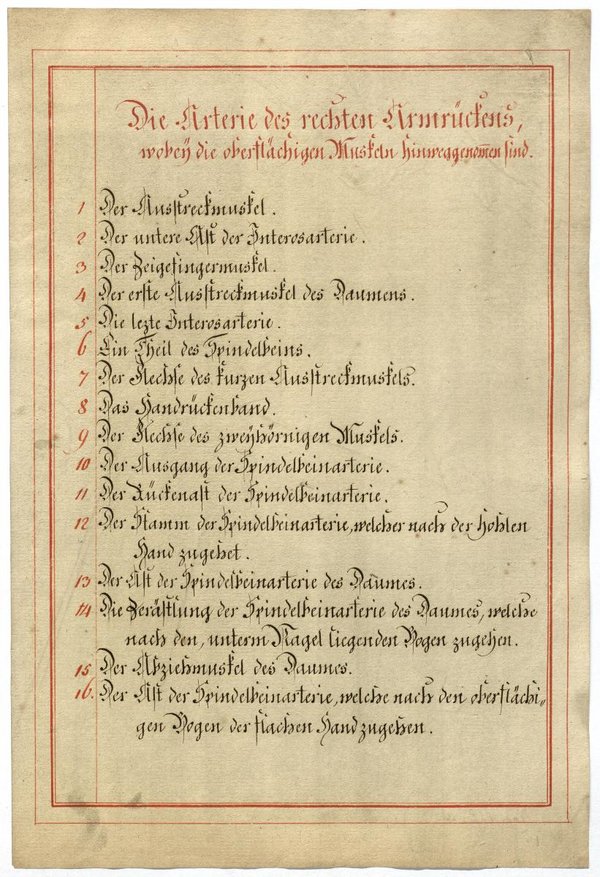 Die Arterie des rechten Armrückens,
wobey die oberflächigen Muskeln hinweggenom̅en sind.
1 Der Ausstreckmuskel.
2 Der untere Ast der Interosarterie.
3 Der Zeigefingermuskel.
4 Der erste Ausstreckmuskel des Daumens.
5 Die lezte Interosarterie.
6 Ein Theil des Spindelbeins.
7 Der Flechse des kurzen Ausstreckmuskels.
8 Das Handrückenband.
9 Der Flechse des zweyhörnigen Muskels.
10 Der Ausgang der Spindelbeinarterie.
11 Der Rückenast der Spindelbeinarterie.
12 Der Stamm der Spindelbeinarterie, welcher nach der hohlen
Hand zugehet.
13 Der Ast der Spindelbeinarterie des Daumes.
14 Die Zerästlung der Spindelbeinarterie des Daumes, welche
nach den, unterm Nagel liegenden Bogen zugehen.
15 Der Abziehmuskel des Daumes.
16. Der Ast der Spindelbeinarterie, welche nach den oberflächi-
gen Bogen der flachen Hand zugehen.